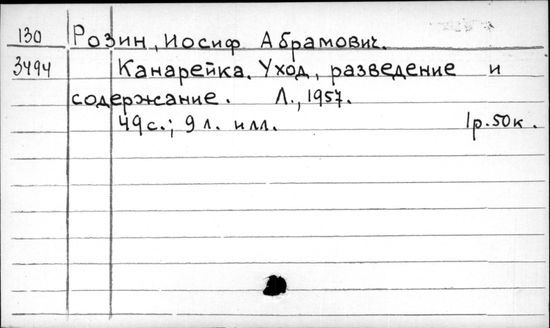 130 Розин, Иосиф Абрамович.
3494 Канарейка. Уход, разведение и
содержание. Л., 1957.
49с.; 9 л. илл. 1р.50к.